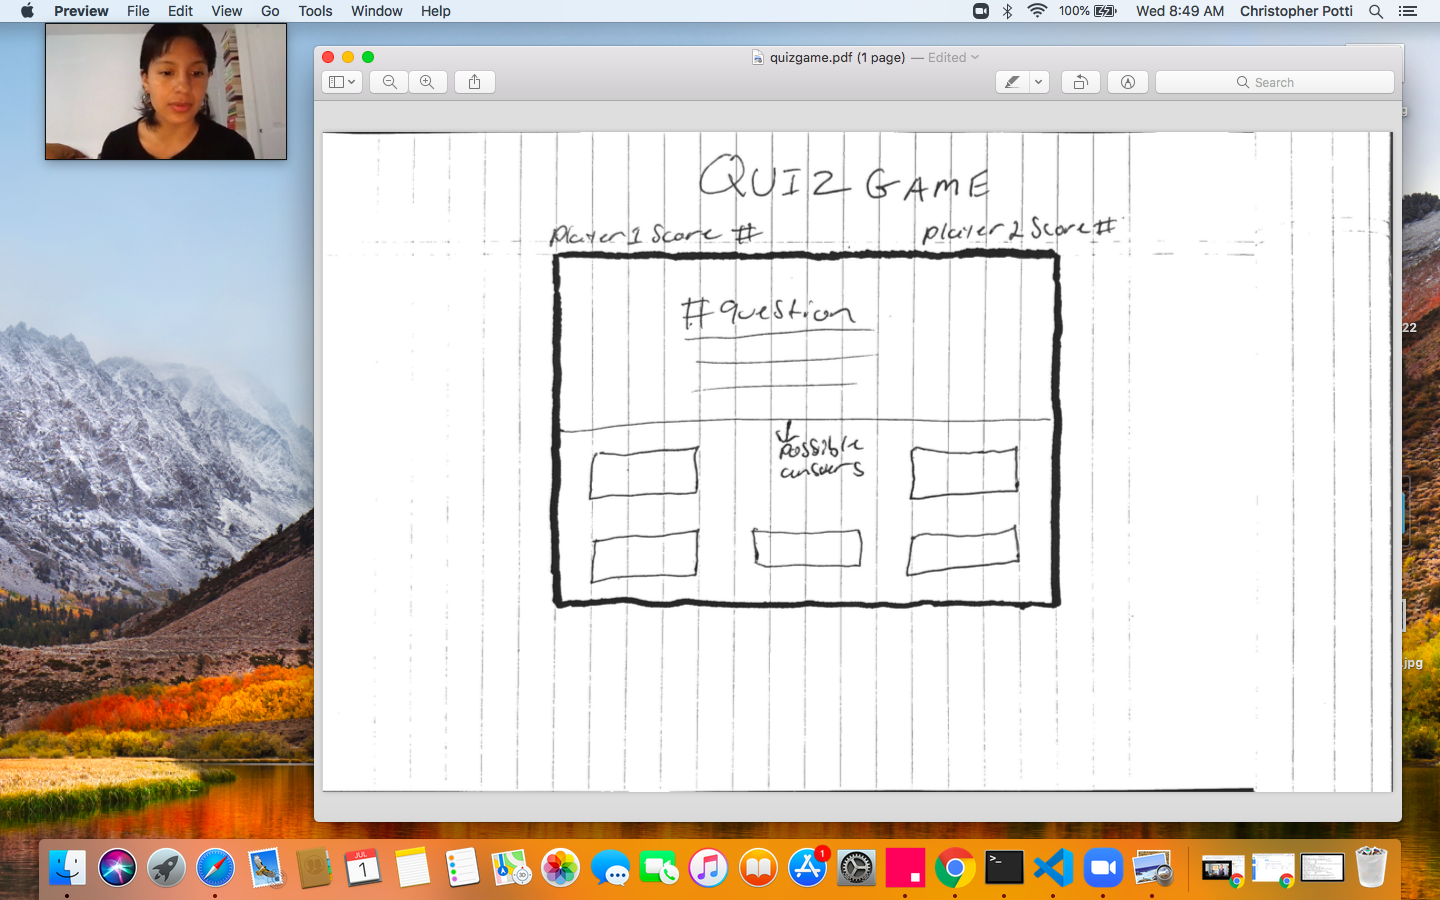 Preview File Edit View Go Tools Window Help 100% Wed 8:49 AM Christopher Potti
quizgame.pdf (1 page) — Edited
Search
QUIZ GAME
Player 1 Score # Player 2 Score #
# question
possible
answers
22
.jpg
JUL
1
1